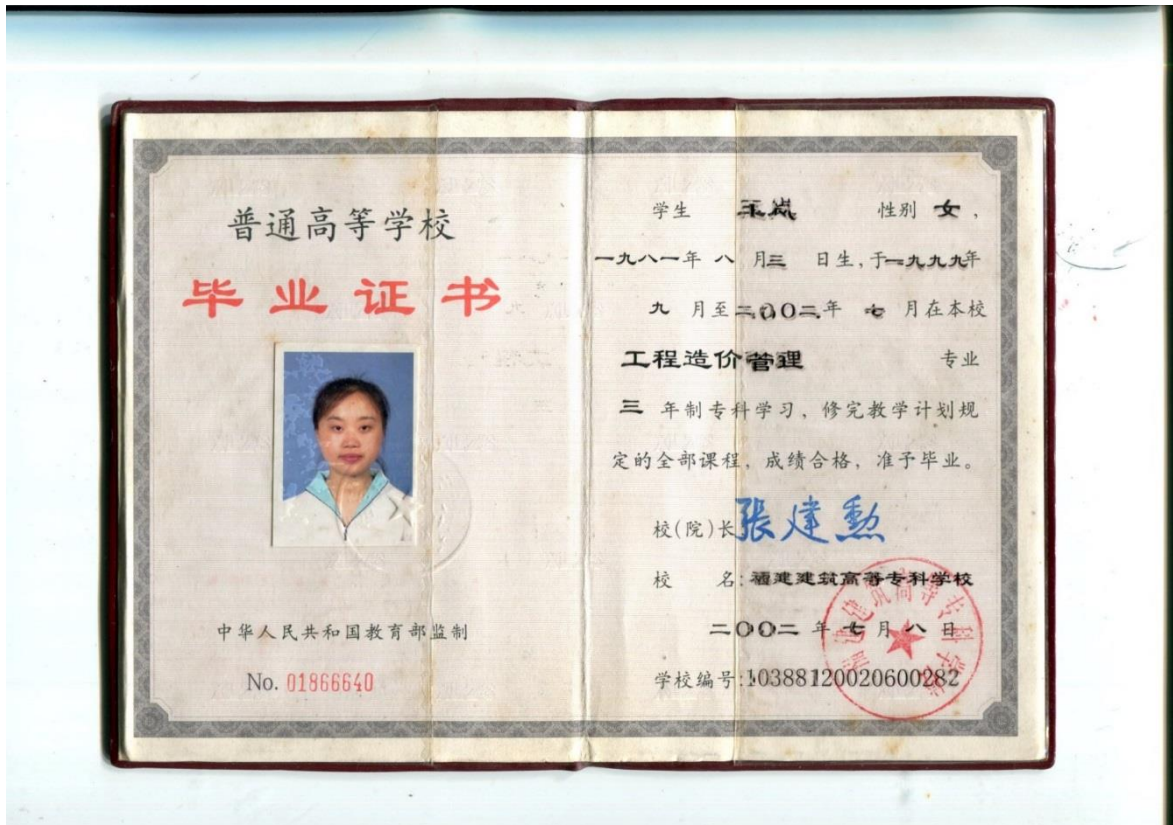 普通高等学校
毕业证书
中华人民共和国教育部监制
No. 01866640
学生 王岚 性别 女,
一九八一年 八 月三 日生,于一九九九年
九 月至二〇〇二年 七 月在本校
工程造价管理 专业
三 年制专科学习,修完教学计划规
定的全部课程,成绩合格,准予毕业。
校(院)长 張建勳
校 名:福建建筑高等专科学校
二〇〇二 年 七 月 八 日
学校编号:10388120020600282
福建建筑高等专科学校